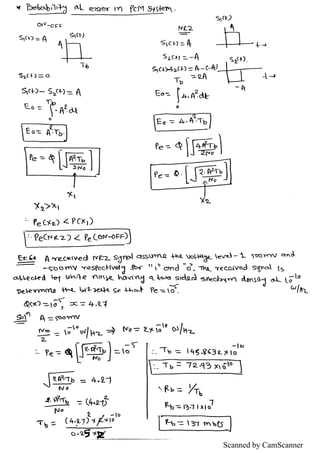 * Probability of error in PCM System.
ON-OFF
S1(t) = A
A
S1(t)
Tb
S2(t) = 0
S1(t) - S2(t) = A
E0 = ∫ 0 Tb A² dt
E0 = A² Tb
Pe = Q [ √ A² Tb / 2N0 ]
X1
X2 > X1
∴ Pe(X2) < P(X1)
∴ Pe(NRZ) < Pe(ON-OFF)
NRZ
S1(t)
A
S1(t) = A
t
S2(t) = -A
S2(t)
-A
t
S1(t) - S2(t) = A - (-A)
= 2A
E0 = ∫ 0 Tb 4·A² dt
E0 = 4·A² Tb
Pe = Q [ √ 4A² Tb / 2N0 ]
Pe = Q [ √ 2·A² Tb / N0 ]
X2
Ex: 6o A received NRZ signal assume the voltage level-1 500mv and
-500mv respectively for "1" and "0". The received signal is
affected by white noise having a two sided spectrum density of 10^-10 W/Hz
Determine the bit rate so that Pe = 10^-5.
Q(x) = 10^-5, x = 4.27
Soln A = 500mv
N0/2 = 10^-10 W/Hz ⇒ N0 = 2×10^-10 W/Hz
∴ Pe = Q [ √ 2·A² Tb / N0 ] = 10^-5
√ 2A² Tb / N0 = 4.27
2·A² Tb / N0 = (4.27)²
Tb = (4.27)² × 2 × 10^-10 / 0.25 × 2
∴ Tb = 145.8632 × 10^-10
∴ Tb = 72.93 × 10^-10
∴ Rb = 1/Tb
Rb = 13.71 × 10^7
Rb = 137 mbps
Scanned by CamScanner